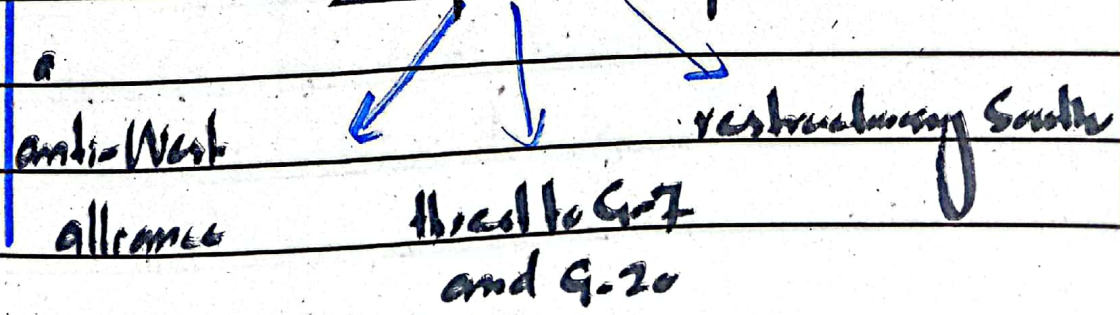 a
anti-West
alliance
threat to G-7
and G-20
restructuring South